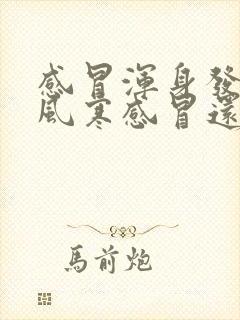 感冒渾身發
風寒感冒還
馬前炮